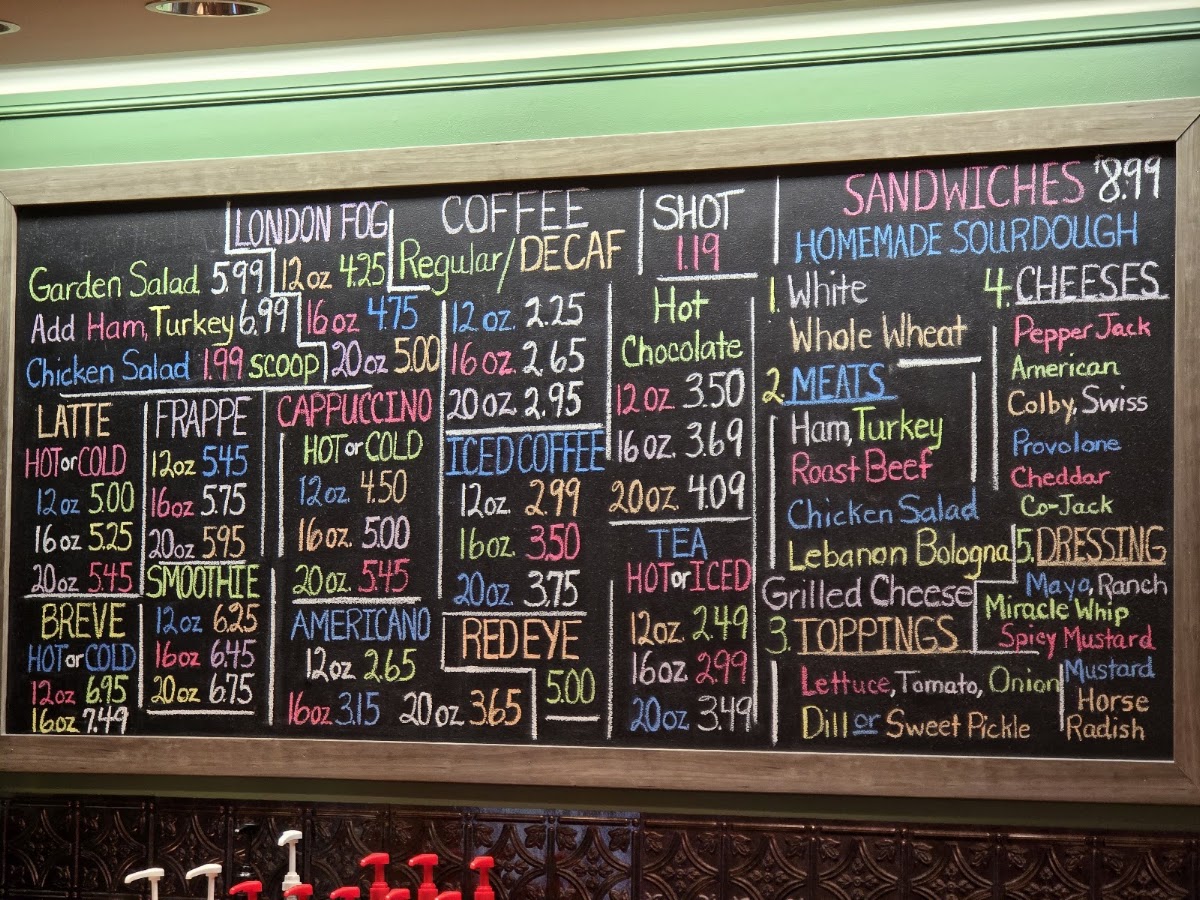 Garden Salad 5.99
Add Ham, Turkey 6.99
Chicken Salad 1.99 scoop
LONDON FOG
12oz 4.25
16oz 4.75
20oz 5.00
LATTE
HOT or COLD
12oz 5.00
16oz 5.25
20oz 5.45
BREVE
HOT or COLD
12oz 6.95
16oz 7.49
FRAPPE
12oz 5.45
16oz 5.75
20oz 5.95
SMOOTHIE
12oz 6.25
16oz 6.45
20oz 6.75
CAPPUCCINO
HOT or COLD
12oz. 4.50
16oz. 5.00
20oz. 5.45
AMERICANO
12oz 2.65
16oz 3.15 20oz 3.65
COFFEE
Regular/DECAF
12oz. 2.25
16oz. 2.65
20oz. 2.95
ICED COFFEE
12oz. 2.99
16oz. 3.50
20oz. 3.75
RED EYE
5.00
SHOT
1.19
Hot
Chocolate
12oz 3.50
16oz. 3.69
20oz. 4.09
TEA
HOT or ICED
12oz. 2.49
16oz 2.99
20oz 3.49
SANDWICHES $8.99
HOMEMADE SOURDOUGH
1. White
Whole Wheat
2. MEATS
Ham, Turkey
Roast Beef
Chicken Salad
Lebanon Bologna
Grilled Cheese
3. TOPPINGS
Lettuce, Tomato, Onion
Dill or Sweet Pickle
4. CHEESES
Pepper Jack
American
Colby, Swiss
Provolone
Cheddar
Co-Jack
5. DRESSING
Mayo, Ranch
Miracle Whip
Spicy Mustard
Mustard
Horse
Radish